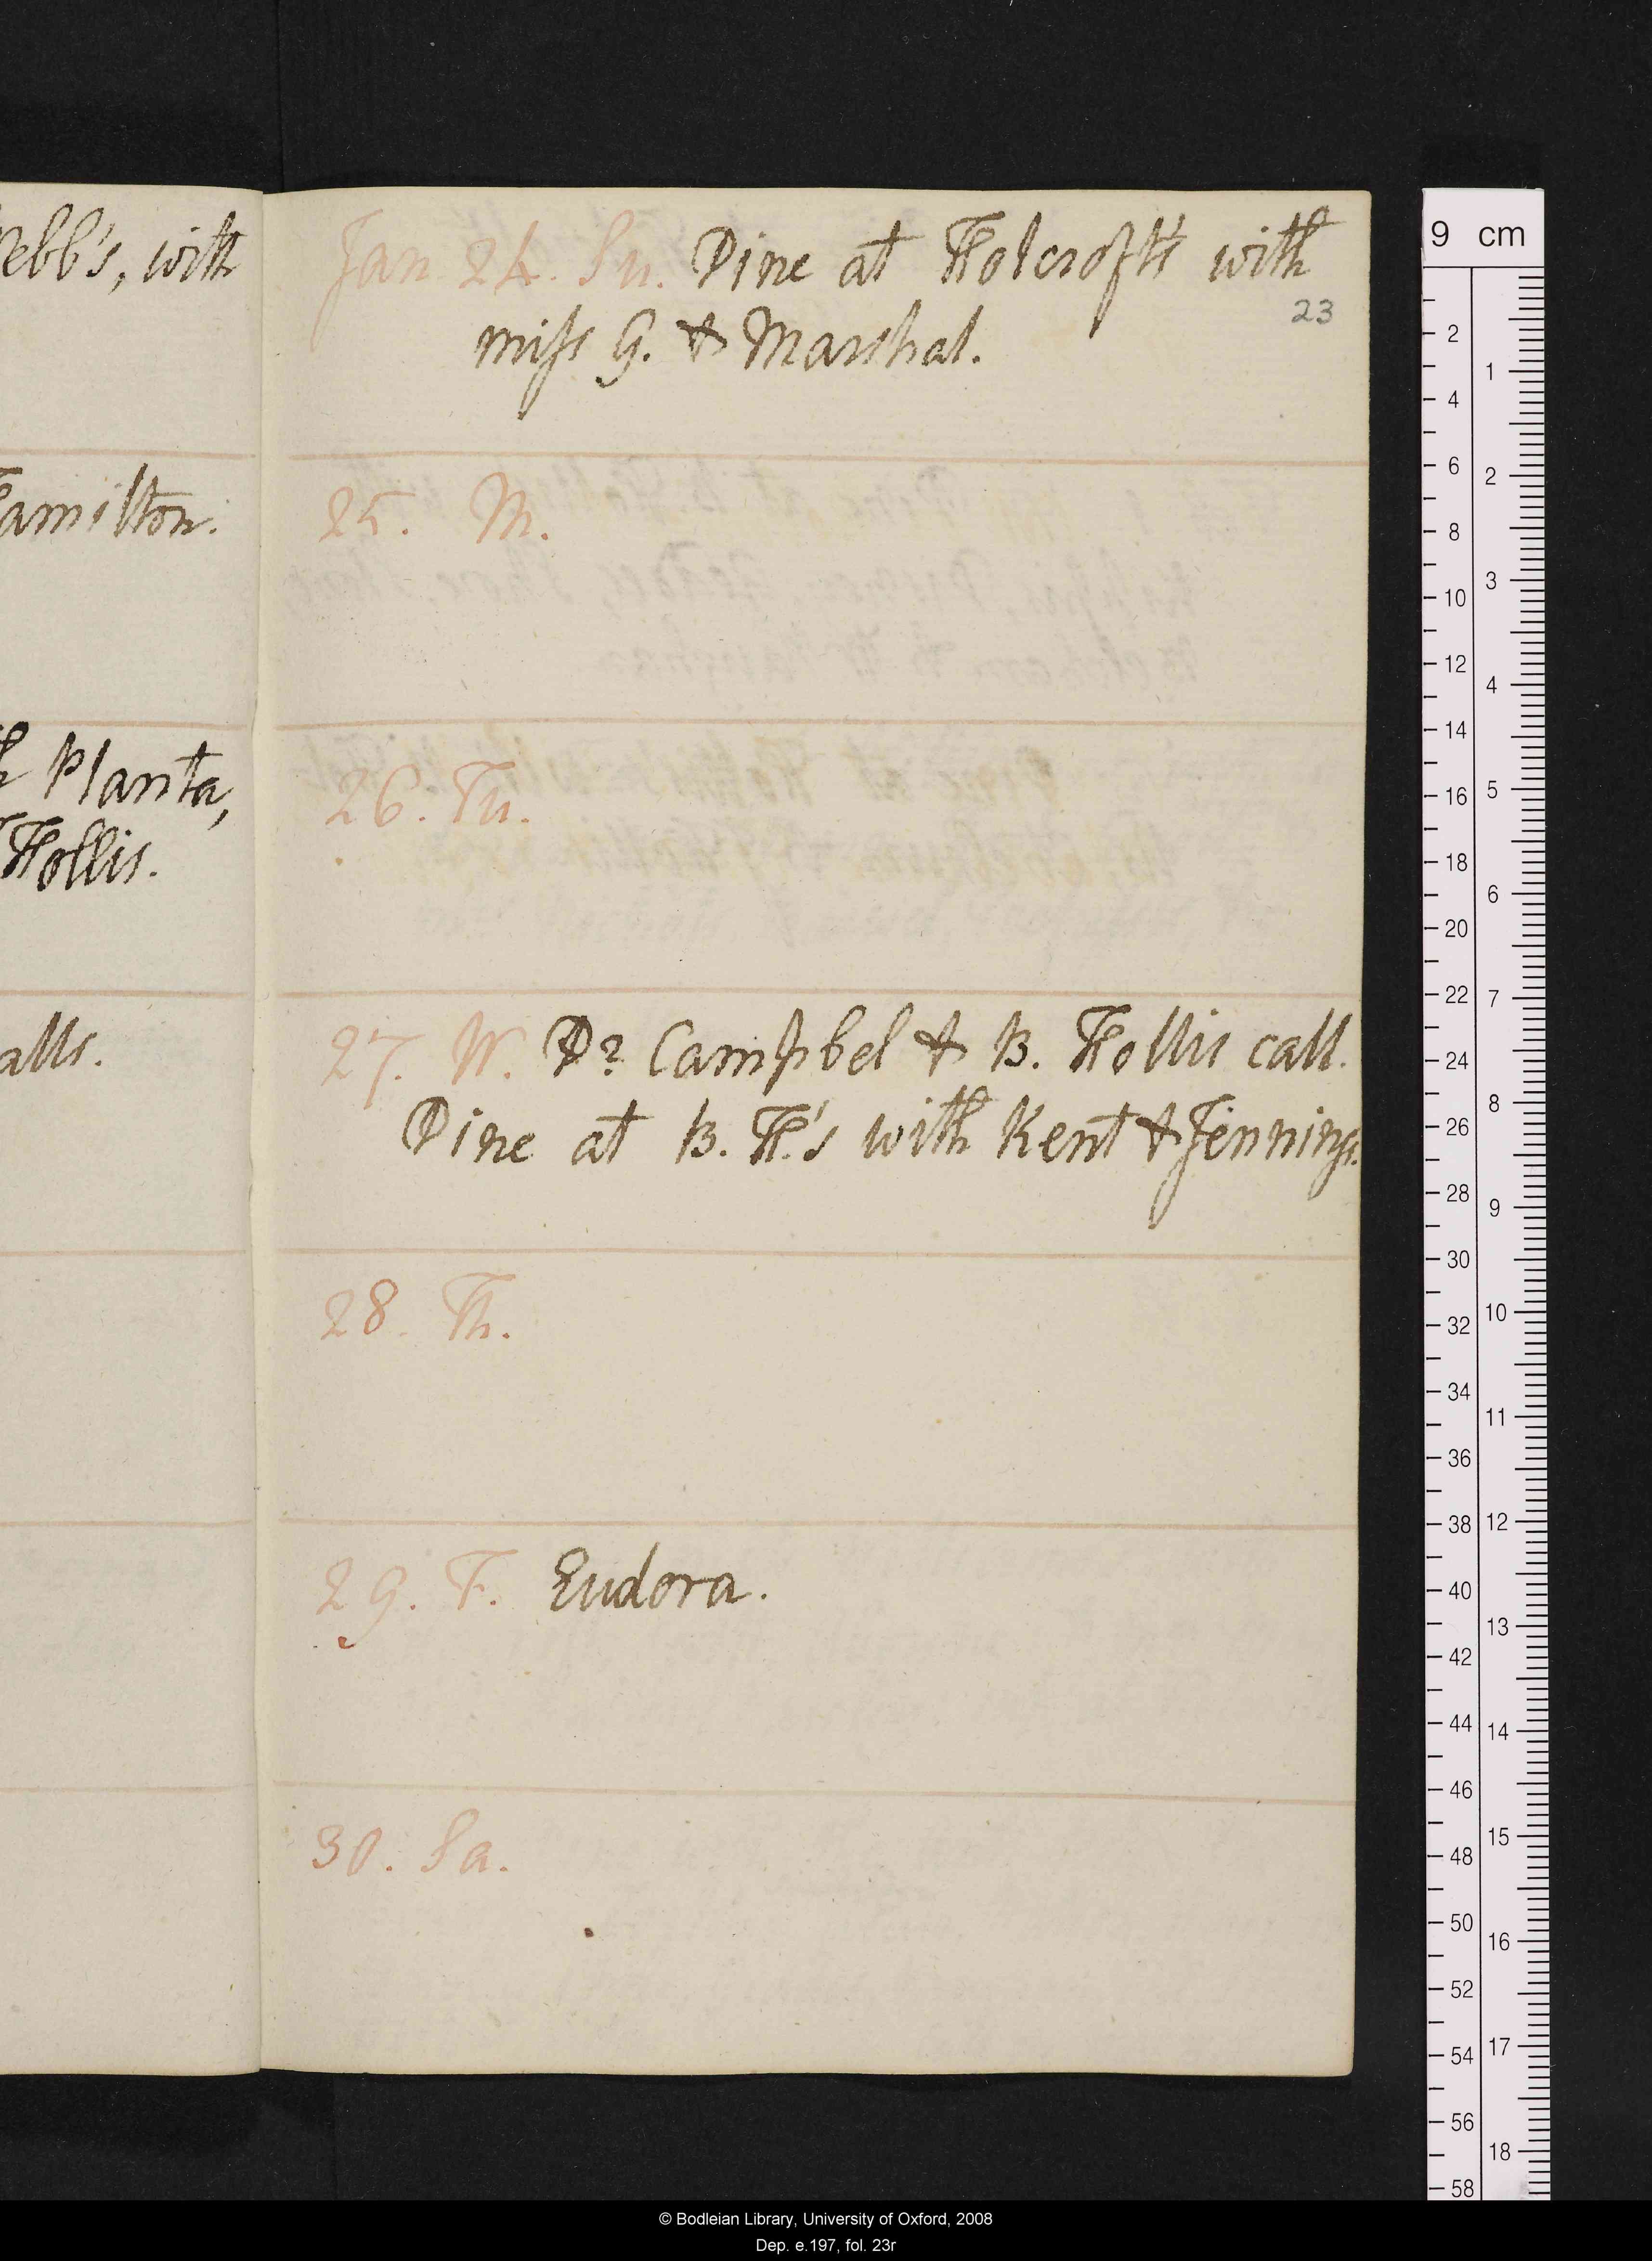 ebb's, with
amilton.
Planta,
Hollis.
alls.
Jan 24. Su. Dine at Holcroft's with
23
miſs G. & Marshal.
25. M.
26. Tu.
27. W. Dr Campbel & B. Hollis call.
Dine at B. H.'s with Kent & Jennings.
28. Th.
29. F. Eudora.
30. Sa.
9 cm
2
4
6
8
10
12
14
16
18
20
22
24
26
28
30
32
34
36
38
40
42
44
46
48
50
52
54
56
58
1
2
3
4
5
6
7
8
9
10
11
12
13
14
15
16
17
18
© Bodleian Library, University of Oxford, 2008
Dep. e.197, fol. 23r